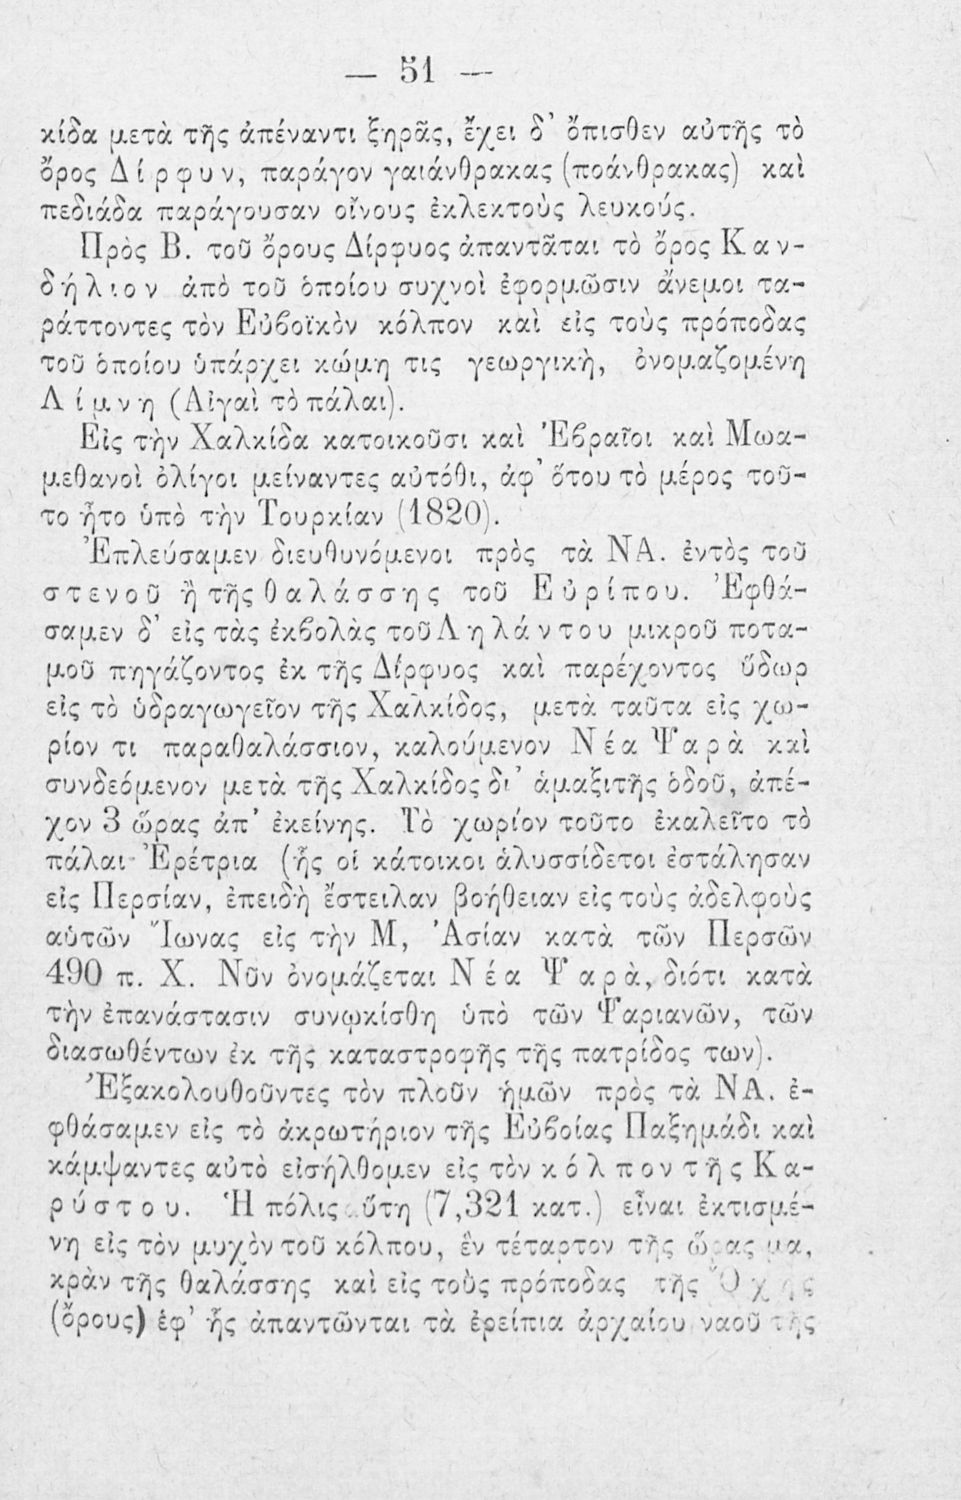 — 51 —
κίδα μετὰ τῆς ἀπέναντι ξηρᾶς, ἔχει δ’ ὄπισθεν αὐτῆς τὸ
ὄρος Δίρφυν, παράγον γαιάνθρακας (ποάνθρακας) καὶ
πεδιάδα παράγουσαν οἴνους ἐκλεκτοὺς λευκούς.
Πρὸς Β. τοῦ ὄρους Δίρφυος ἀπαντᾶται τὸ ὄρος Καν-
δήλιον ἀπὸ τοῦ ὁποίου συχνοὶ ἐφορμῶσιν ἄνεμοι τα-
ράττοντες τὸν Εὐβοϊκὸν κόλπον καὶ εἰς τοὺς πρόποδας
τοῦ ὁποίου ὑπάρχει κώμη τις γεωργικὴ, ὀνομαζομένη
Λίμνη (Αἰγαὶ τὸ πάλαι).
Εἰς τὴν Χαλκίδα κατοικοῦσι καὶ Ἑβραῖοι καὶ Μωα-
μεθανοὶ ὀλίγοι μείναντες αὐτόθι, ἀφ’ ὅτου τὸ μέρος τοῦ-
το ἦτο ὑπὸ τὴν Τουρκίαν (1820).
Ἐπλεύσαμεν διευθυνόμενοι πρὸς τὰ ΝΑ. ἐντὸς τοῦ
στενοῦ ἢ τῆς θαλάσσης τοῦ Εὐρίπου. Ἐφθά-
σαμεν δ’ εἰς τὰς ἐκβολὰς τοῦ Ληλάντου μικροῦ ποτα-
μοῦ πηγάζοντος ἐκ τῆς Δίρφυος καὶ παρέχοντος ὕδωρ
εἰς τὸ ὑδραγωγεῖον τῆς Χαλκίδος, μετὰ ταῦτα εἰς χω-
ρίον τι παραθαλάσσιον, καλούμενον Νέα Ψαρὰ καὶ
συνδεόμενον μετὰ τῆς Χαλκίδος δι’ ἁμαξιτῆς ὁδοῦ, ἀπέ-
χον 3 ὥρας ἀπ’ ἐκείνης. Τὸ χωρίον τοῦτο ἐκαλεῖτο τὸ
πάλαι Ἐρέτρια (ἧς οἱ κάτοικοι ἁλυσσίδετοι ἐστάλησαν
εἰς Περσίαν, ἐπειδὴ ἔστειλαν βοήθειαν εἰς τοὺς ἀδελφοὺς
αὑτῶν Ἴωνας εἰς τὴν Μ, Ἀσίαν κατὰ τῶν Περσῶν
490 π. Χ. Νῦν ὀνομάζεται Νέα Ψαρὰ, διότι κατὰ
τὴν ἐπανάστασιν συνῳκίσθη ὑπὸ τῶν Ψαριανῶν, τῶν
διασωθέντων ἐκ τῆς καταστροφῆς τῆς πατρίδος των).
Ἐξακολουθοῦντες τὸν πλοῦν ἡμῶν πρὸς τὰ ΝΑ. ἐ-
φθάσαμεν εἰς τὸ ἀκρωτήριον τῆς Εὐβοίας Παξημάδι καὶ
κάμψαντες αὐτὸ εἰσήλθομεν εἰς τὸν κόλπον τῆς Κα-
ρύστου. Ἡ πόλις αὕτη (7,321 κατ.) εἶναι ἐκτισμέ-
νη εἰς τὸν μυχὸν τοῦ κόλπου, ἓν τέταρτον τῆς ὥρας μα,
κρὰν τῆς θαλάσσης καὶ εἰς τοὺς πρόποδας τῆς Ὄχης
(ὄρους) ἐφ’ ἧς ἀπαντῶνται τὰ ἐρείπια ἀρχαίου ναοῦ τῆς